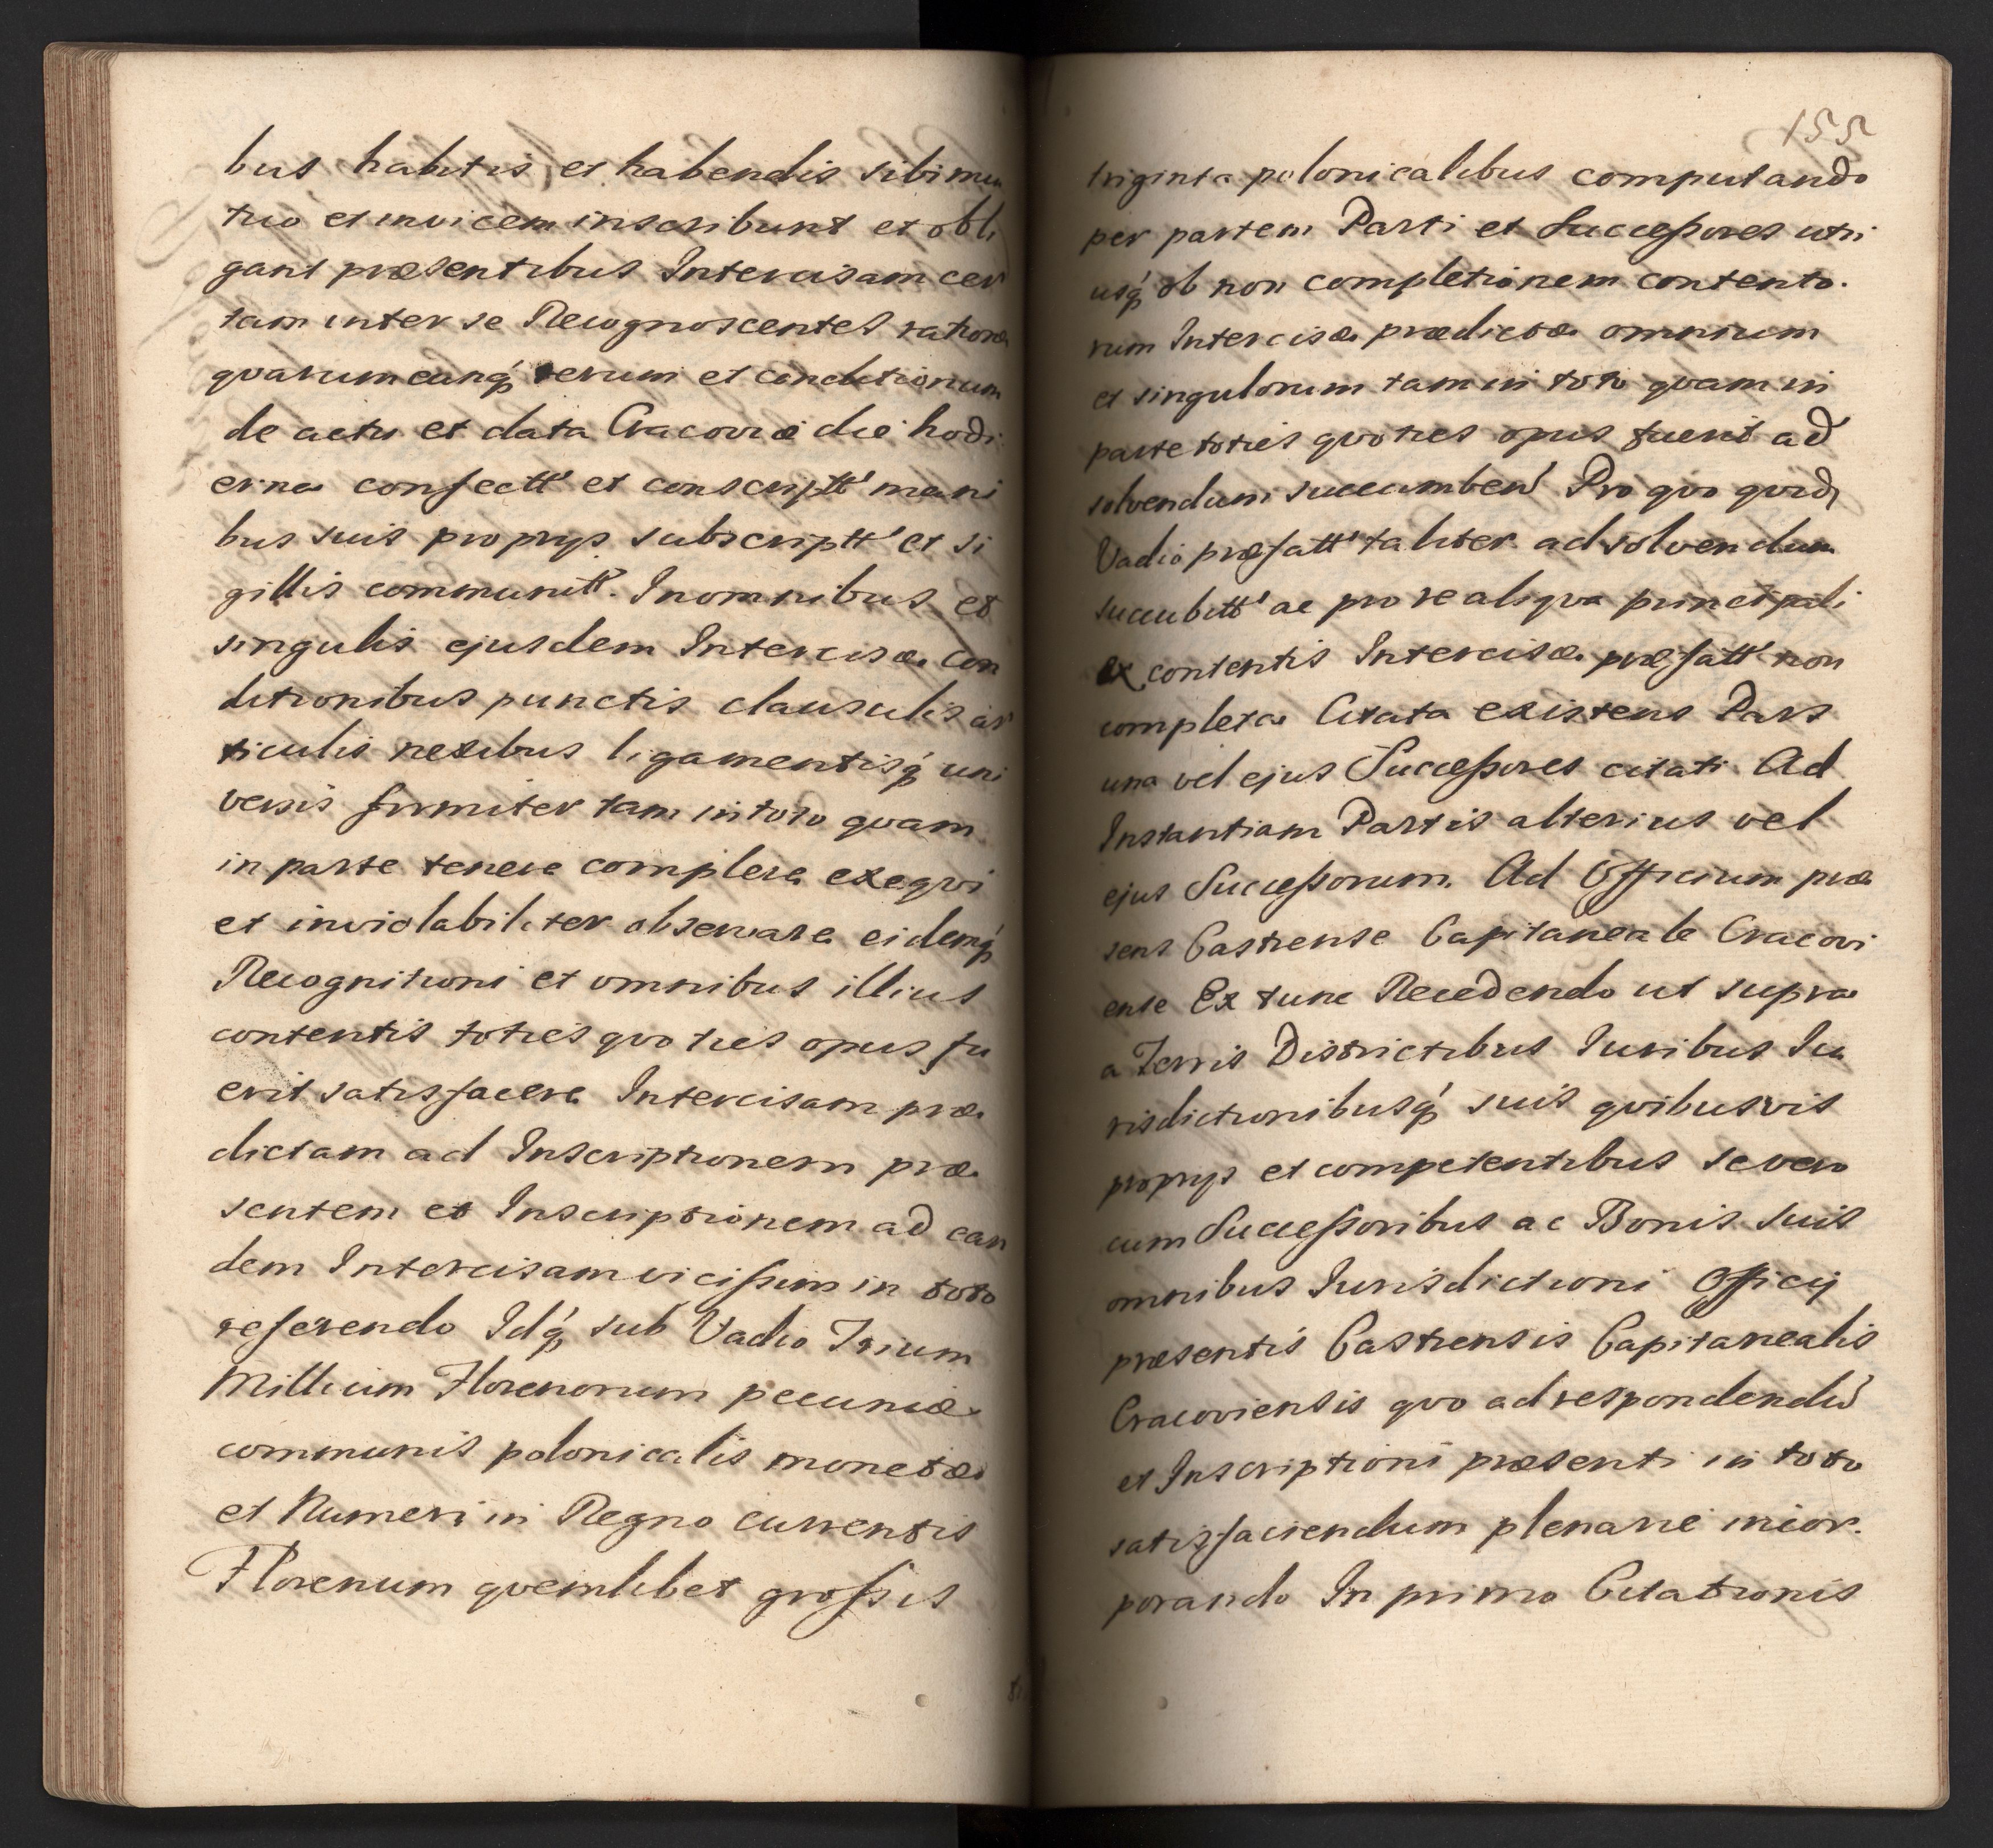 bus habitis et habendis sibi mu
tuo et invicem inscribunt et obli
gant præsentibus Intercisam cer
tam inter se Recognoscentes ratione
qvarumcunq́ rerum et conditionum
de actu et data Cracoviæ die hodi
erna confectt' et conscriptt' mani
bus suis proprys subscriptt' et si
gillis communitt. In omnibus et
singulis ejusdem Intercisæ con
ditionibus punctis clausulis ar
ticulis nexibus ligamentisq́ uni
versis firmiter tam in toto qvam
in parte tenere complere exeqvi
et inviolabiliter observare eidemq́
Recognitioni et omnibus illius
contentis toties qvoties opus fu
erit satisfacere Intercisam præ
dictam ad Inscriptionem præ
sentem et Inscriptionem ad ean
dem Intercisam vicissim in toto
referendo Idq́ sub Vadio Trium
Millium Florenorum pecuniæ
communis polonicalis monetæ
et Numeri in Regno currentis
Florenum qvemlibet grossis
155
triginta polonicalibus computando
per partem Parti et Successores utri
usq́ ob non completionem contento.
rum Intercisæ prædictæ omnium
et singulorum tam in toto qvam in
parte toties qvoties opus fuerit ad
solvendum succumben' Pro qvo qvid
Vadio præfatt' taliter ad solvendum
succubitt' ac pro re aliqva principali
ex contentis Intercisæ præfatt' non
completa Citata existens Pars
una vel ejus Successores citati Ad
Instantiam Partis alterius vel
ejus Successorum. Ad Officium præ
sens Castrense Capitaneale Cracovi
ense Ex tunc Recedendo ut supra
a Terris Districtibus Iuribus Iu
risdictionibusq́ suis qvibusvis
proprys et competentibus se vero
cum Successoribus ac Bonis suis
omnibus Iurisdictioni Officij
præsentis Castrensis Capitanealis
Cracoviensis qvo ad respondendu'
et Inscriptioni præsenti in toto
satisfaciendum plenarie incor.
porando In primo Citationis